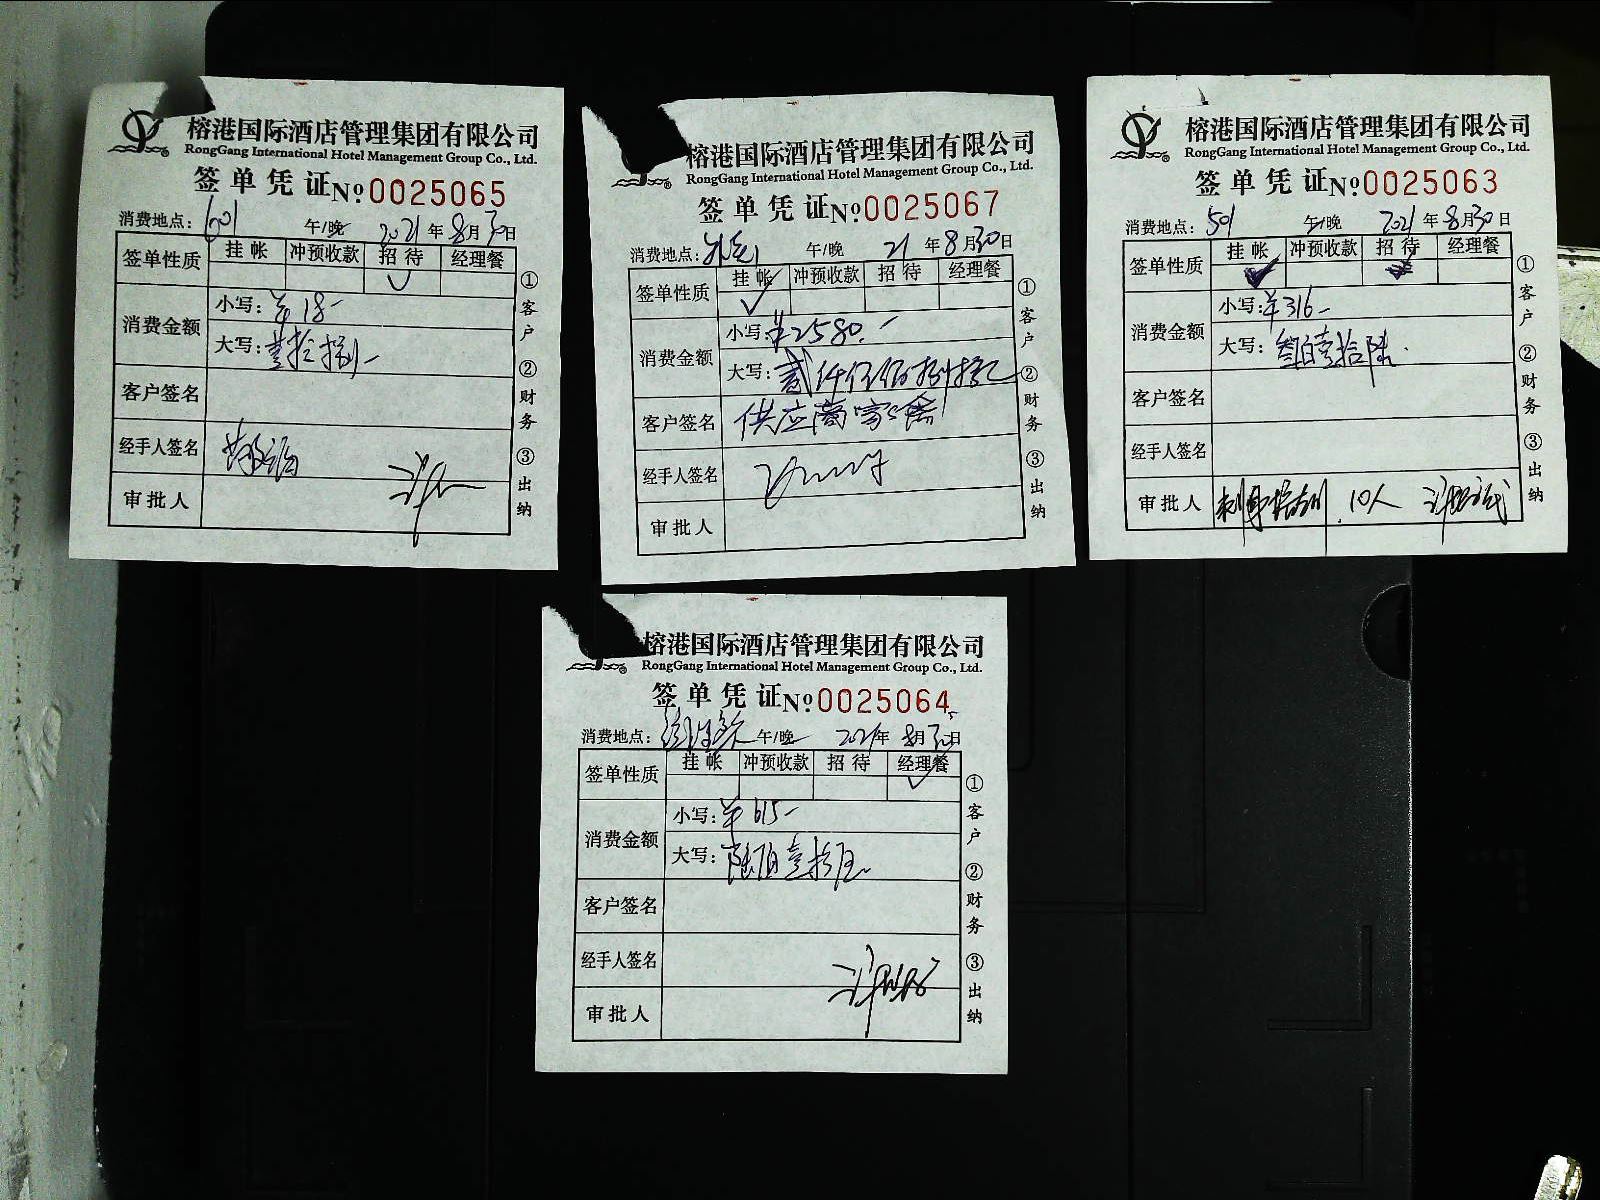 榕港国际酒店管理集团有限公司
RongGang International Hotel Management Group Co., Ltd.
签单凭证 No 0025065
消费地点: 601 午/晚 2021年8月30日
签单性质 挂帐 冲预收款 招待 经理餐
✓
消费金额 小写: ¥18-
大写: 壹拾捌-
客户签名
经手人签名
审批人
①客户 ②财务 ③出纳
榕港国际酒店管理集团有限公司
RongGang International Hotel Management Group Co., Ltd.
签单凭证 No 0025067
消费地点: 午/晚 21年8月30日
签单性质 挂帐 冲预收款 招待 经理餐
✓
消费金额 小写: ¥2580.-
大写: 贰仟伍佰捌拾元
客户签名 供应商
经手人签名
审批人
①客户 ②财务 ③出纳
榕港国际酒店管理集团有限公司
RongGang International Hotel Management Group Co., Ltd.
签单凭证 No 0025063
消费地点: 501 午/晚 2021年8月30日
签单性质 挂帐 冲预收款 招待 经理餐
消费金额 小写: ¥316-
大写: 叁佰壹拾陆.
客户签名
经手人签名
审批人 10人
①客户 ②财务 ③出纳
榕港国际酒店管理集团有限公司
RongGang International Hotel Management Group Co., Ltd.
签单凭证 No 0025064
消费地点: 午/晚 2021年8月30日
签单性质 挂帐 冲预收款 招待 经理餐
✓
消费金额 小写: ¥615-
大写: 陆佰壹拾伍
客户签名
经手人签名
审批人
①客户 ②财务 ③出纳